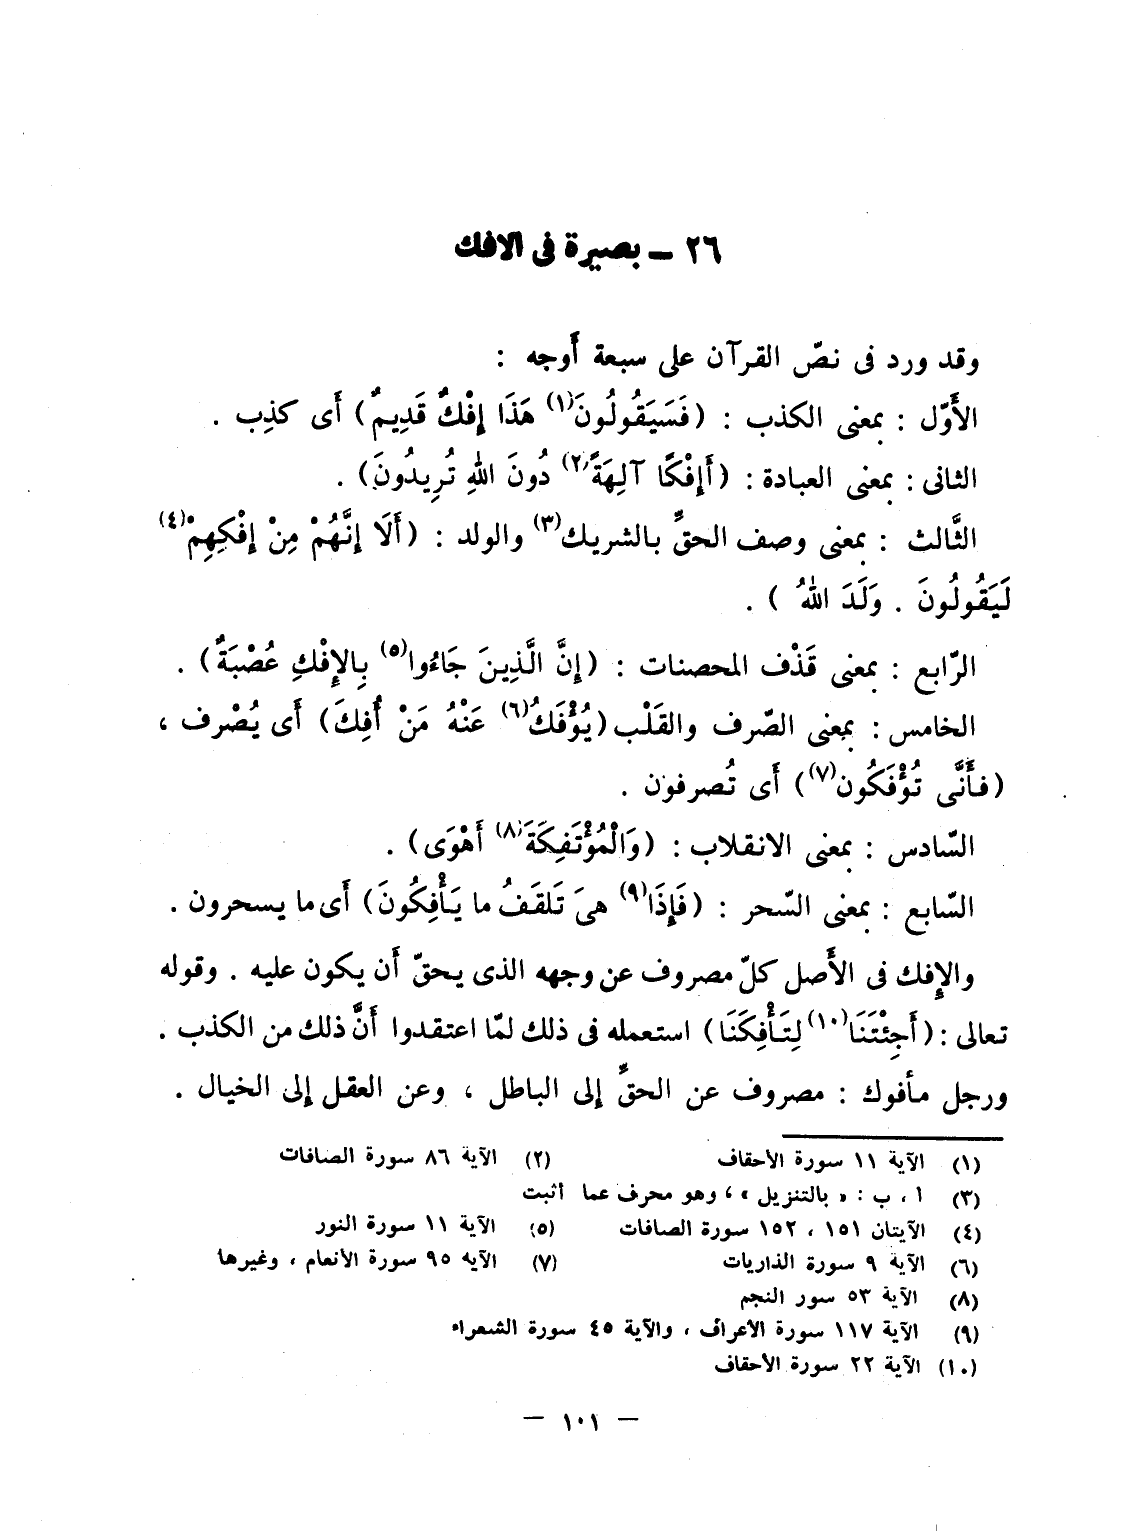 ٢٦ ــ بصيرة فى الافك
وقد ورد فى نصّ القرآن على سبعة أَوجه :
الأَوّل : بمعنى الكذب : (فَسَيَقُولُونَ(١) هَذَا إِفْكٌ قَدِيمٌ) أَى كذِب .
الثانى : بمعنى العبادة : (أَإِفْكًا آلِهَةً(٢) دُونَ اللهِ تُرِيدُونَ) .
الثَّالث : بمعنى وصف الحقِّ بالشريك(٣) والولد : (أَلَا إِنَّهُمْ مِنْ إِفْكِهِمْ(٤)
لَيَقُولُونَ . وَلَدَ اللهُ ) .
الرّابع : بمعنى قَذْف المحصنات : (إِنَّ الَّذِينَ جَاءُوا(٥) بِالإِفْكِ عُصْبَةٌ) .
الخامس : بمعنى الصّرف والقَلْب (يُؤْفَكُ(٦) عَنْهُ مَنْ أُفِكَ) أَى يُصْرف ،
(فأَنَّى تُؤْفَكُون(٧)) أَى تُصرفون .
السّادس : بمعنى الانقلاب : (وَالْمُؤْتَفِكَةَ(٨) أَهْوَى) .
السّابع : بمعنى السّحر : (فَإِذَا(٩) هىَ تَلقَفُ ما يَأْفِكُونَ) أَى ما يسحرون .
والإِفك فى الأَصل كلّ مصروف عن وجهه الذى يحقّ أَن يكون عليه . وقوله
تعالى : (أَجِئْتَنَا(١٠) لِتَأْفِكَنَا) استعمله فى ذلك لمّا اعتقدوا أَنَّ ذلك من الكذب .
ورجل مأفوك : مصروف عن الحقِّ إِلى الباطل ، وعن العقل إِلى الخيال .
(١) الآية ١١ سورة الأحقاف (٢) الآية ٨٦ سورة الصافات
(٣) أ ، ب : « بالتنزيل » ، وهو محرف عما أثبت
(٤) الآيتان ١٥١ ، ١٥٢ سورة الصافات (٥) الآية ١١ سورة النور
(٦) الآية ٩ سورة الذاريات (٧) الآيه ٩٥ سورة الأنعام ، وغيرها
(٨) الآية ٥٣ سور النجم
(٩) الآية ١١٧ سورة الأعراف ، والآية ٤٥ سورة الشعراء
(١٠) الآية ٢٢ سورة الأحقاف
— ١٠١ —